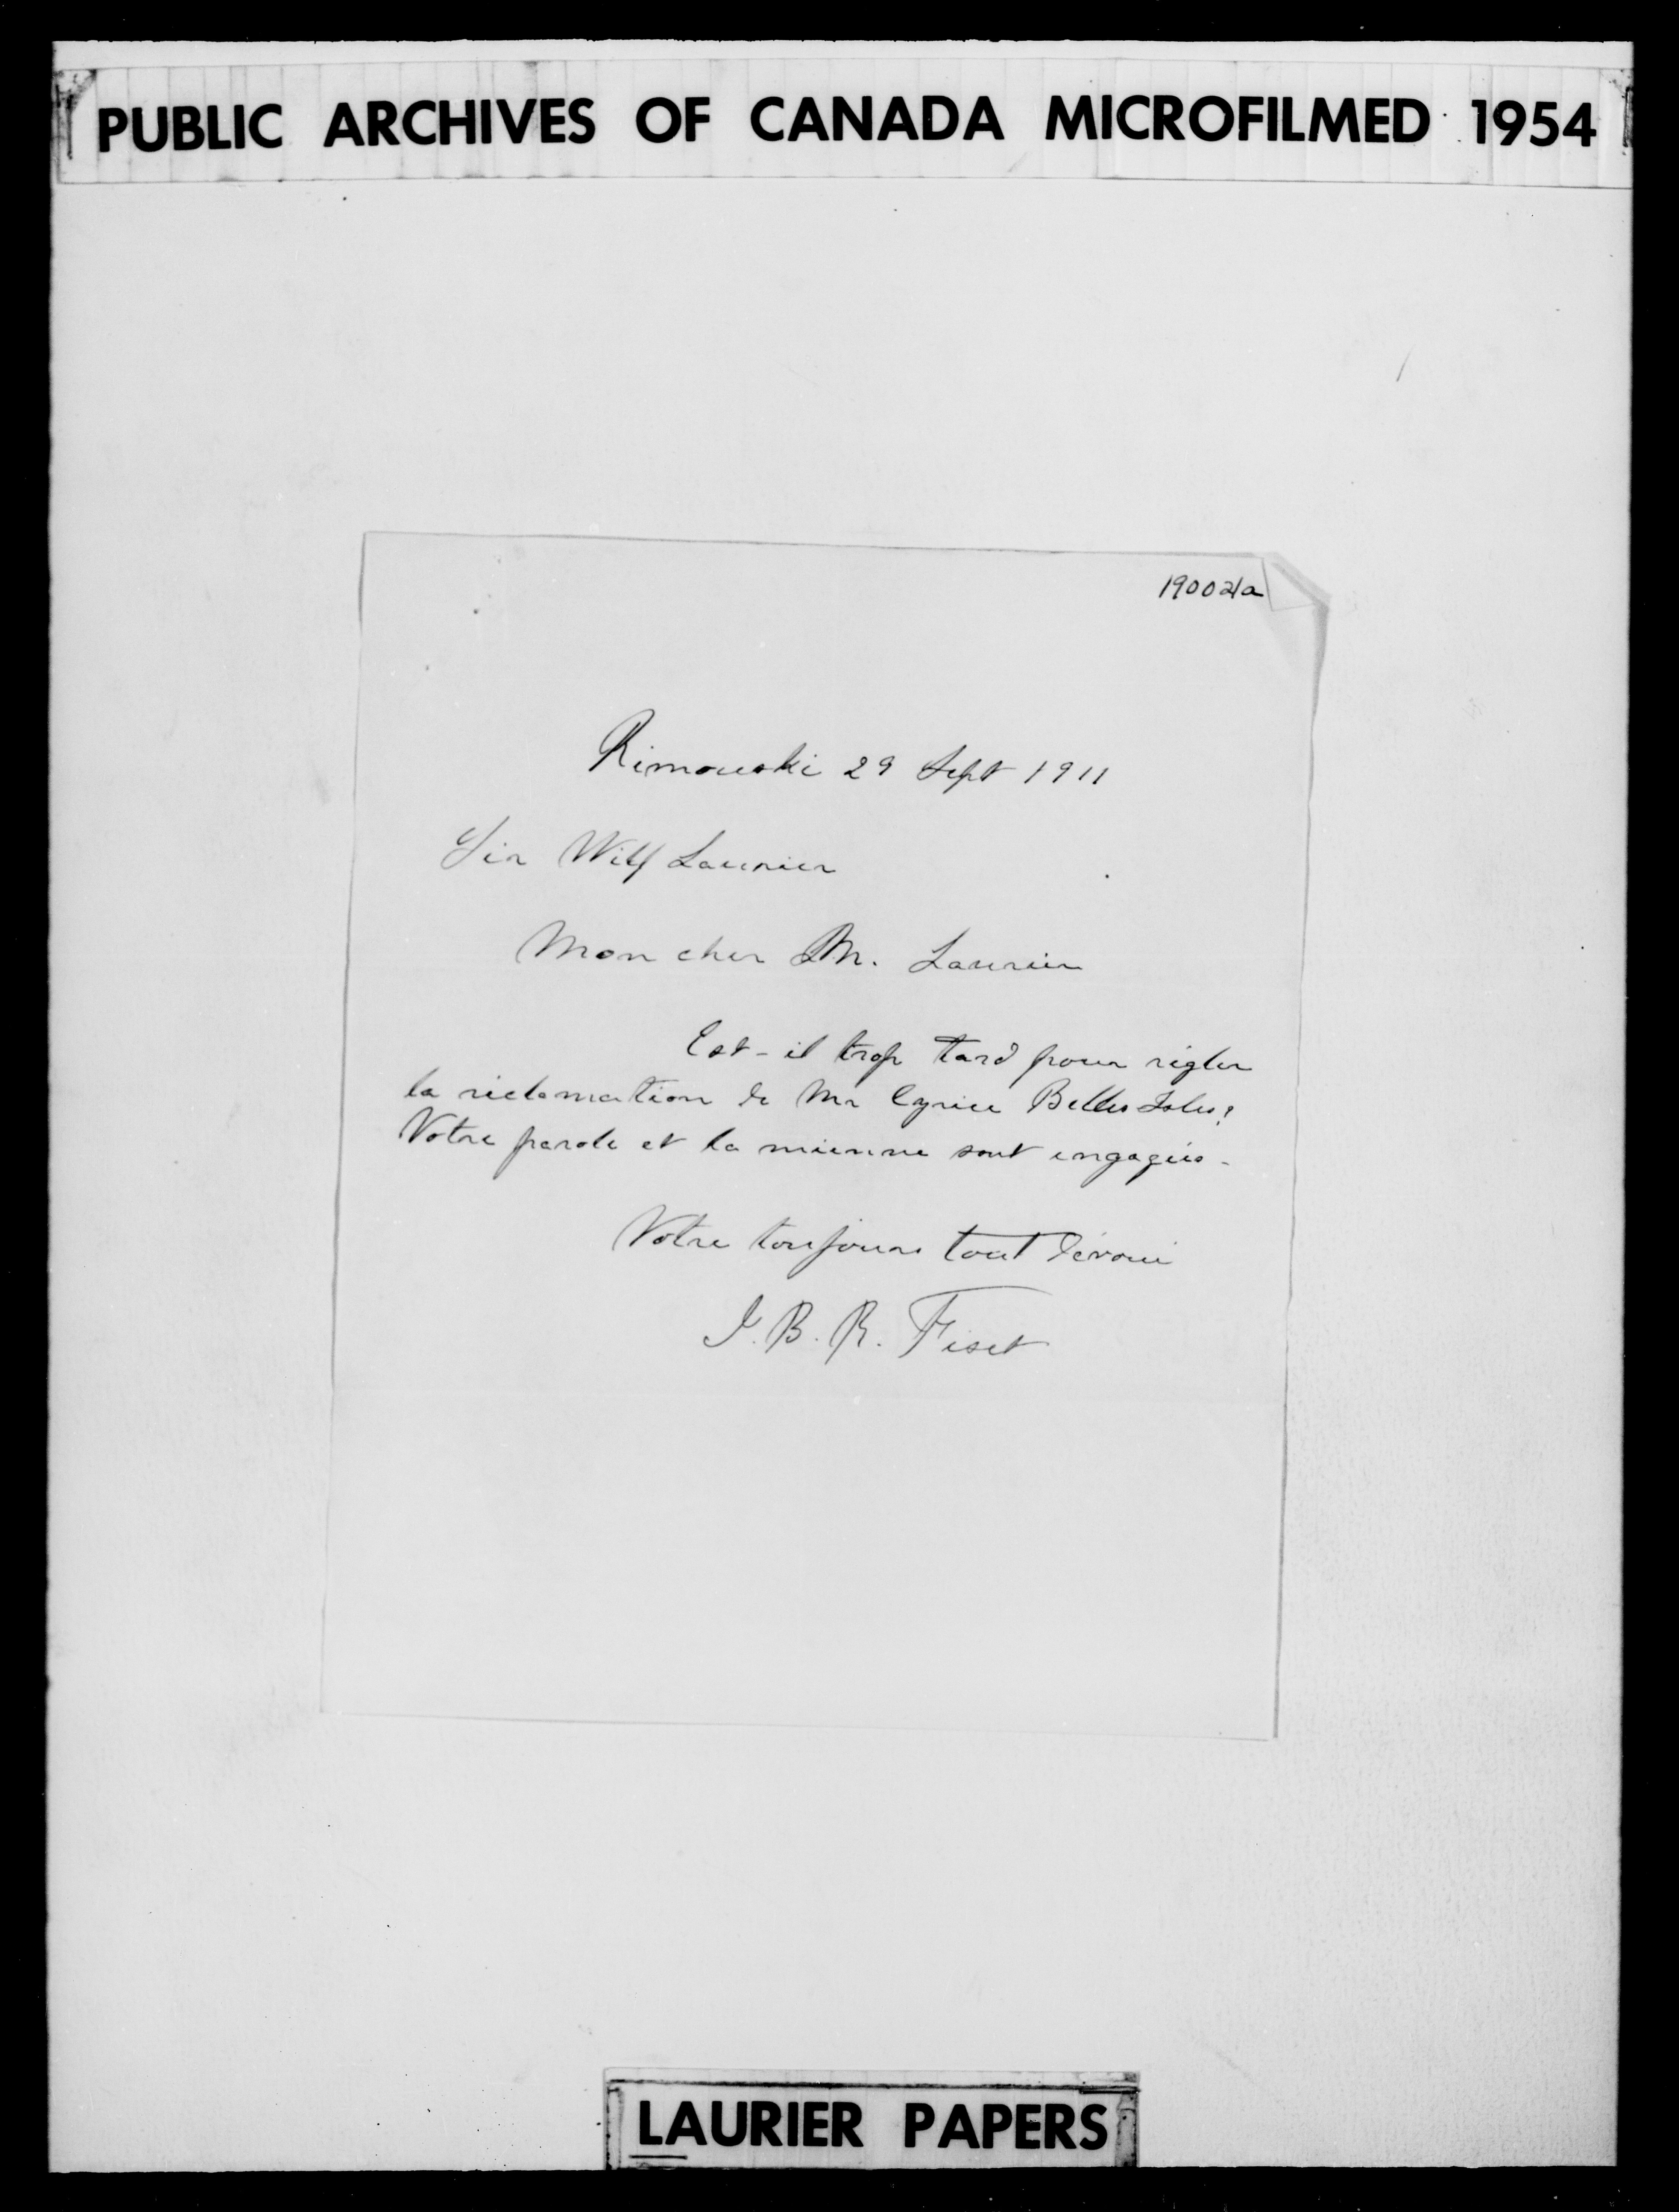 PUBLIC ARCHIVES OF CANADA MICROFILMED 1954
190021a
Rimouski 29 Sept 1911
Sir Wilf Laurier
Mon cher M. Laurier
Est-il trop tard pour régler
la réclamation de Mr Cyrice Belles Isles?
Votre parole et la mienne sont engagées -
Votre toujours tout dévoué
J. B. R. Fiset
LAURIER PAPERS